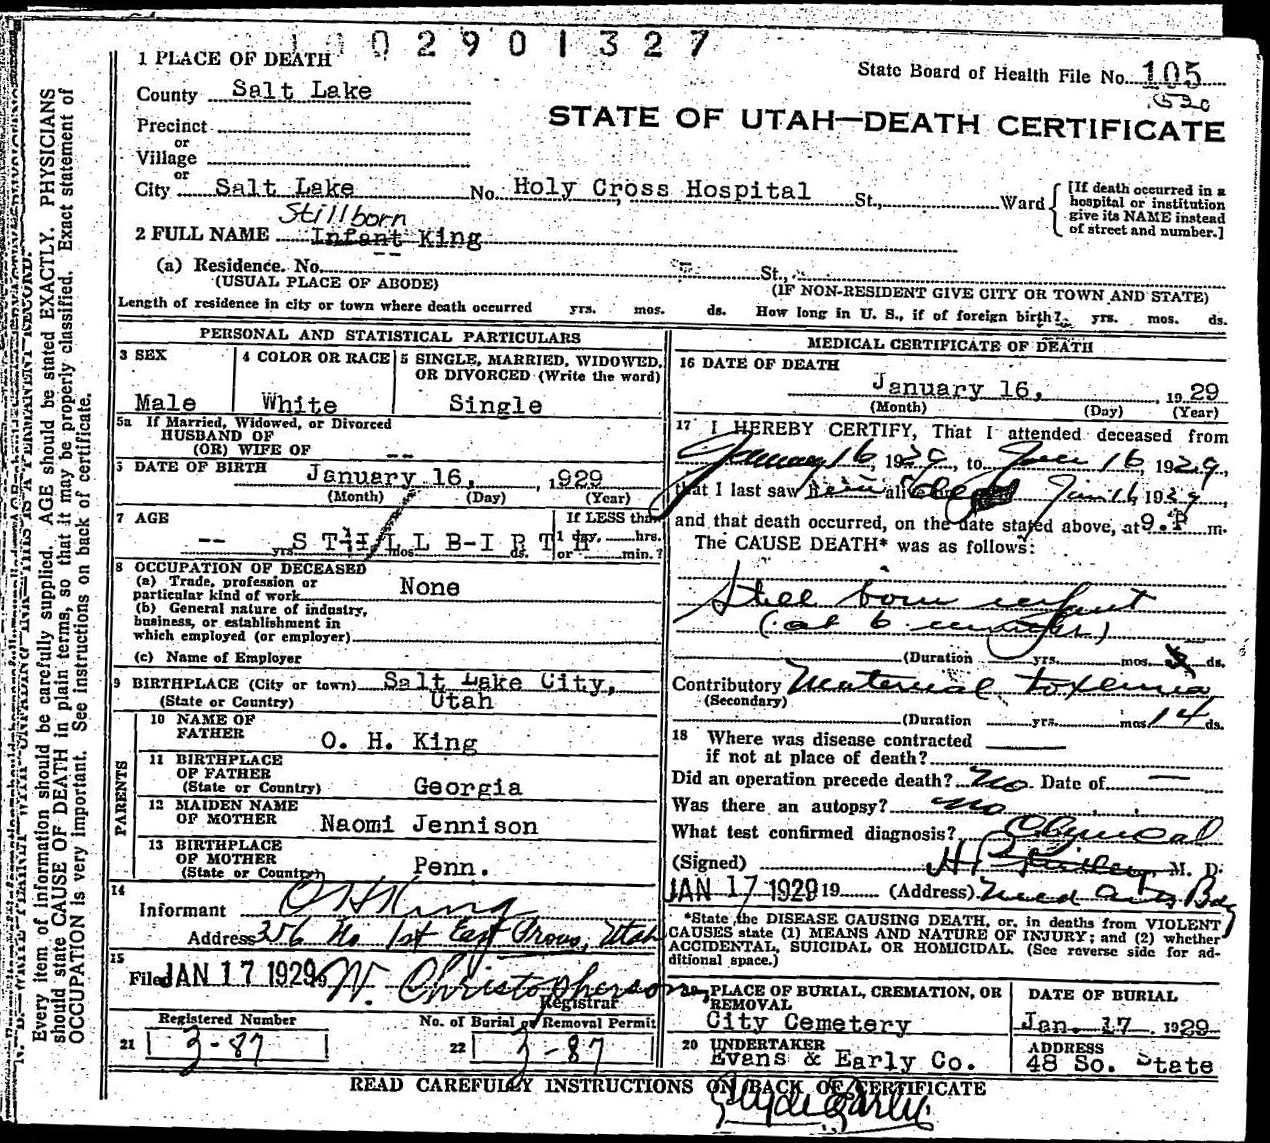 1002901327
1 PLACE OF DEATH
State Board of Health File No. 105
County Salt Lake
530
STATE OF UTAH—DEATH CERTIFICATE
Precinct
or
Village
or
City Salt Lake No. Holy Cross Hospital St., Ward
[If death occurred in a hospital or institution give its NAME instead of street and number.]
Stillborn
2 FULL NAME Infant King
--
(a) Residence. No. St.,
(USUAL PLACE OF ABODE) (IF NON-RESIDENT GIVE CITY OR TOWN AND STATE)
Length of residence in city or town where death occurred yrs. mos. ds. How long in U. S., if of foreign birth? yrs. mos. ds.
PERSONAL AND STATISTICAL PARTICULARS
3 SEX 4 COLOR OR RACE 5 SINGLE, MARRIED, WIDOWED,
OR DIVORCED (Write the word)
Male White Single
5a If Married, Widowed, or Divorced
HUSBAND OF
(OR) WIFE OF --
6 DATE OF BIRTH January 16, 1929
(Month) (Day) (Year)
7 AGE If LESS than
-- STILLBIRTH 1 day, hrs.
yrs. mos. ds. or min.?
8 OCCUPATION OF DECEASED
(a) Trade, profession or
particular kind of work None
(b) General nature of industry,
business, or establishment in
which employed (or employer)
(c) Name of Employer
9 BIRTHPLACE (City or town) Salt Lake City,
(State or Country) Utah
PARENTS
10 NAME OF
FATHER O. H. King
11 BIRTHPLACE
OF FATHER
(State or Country) Georgia
12 MAIDEN NAME
OF MOTHER Naomi Jennison
13 BIRTHPLACE
OF MOTHER
(State or Country) Penn.
14
Informant O H King
Address 356 No 1st East Provo, Utah
15
Filed JAN 17 1929 W. Christopherson
Registrar
Registered Number No. of Burial or Removal Permit
21 3-87 22 3-87
MEDICAL CERTIFICATE OF DEATH
16 DATE OF DEATH
January 16, 1929
(Month) (Day) (Year)
17 I HEREBY CERTIFY, That I attended deceased from
January 16, 1929, to Jan 16 1929,
that I last saw him alive on Jan 16, 1929,
and that death occurred, on the date stated above, at 9. P m.
The CAUSE DEATH* was as follows:
Still born infant
(at 6 months)
(Duration yrs. mos. ds.
Contributory Maternal toxemia
(Secondary)
(Duration yrs. mos. 14 ds.
18 Where was disease contracted
if not at place of death?
Did an operation precede death? No. Date of —
Was there an autopsy? no
What test confirmed diagnosis? Clinical
(Signed) M. D.
JAN 17 1929 19 (Address) Med Arts Bdg
*State the DISEASE CAUSING DEATH, or, in deaths from VIOLENT
CAUSES state (1) MEANS AND NATURE OF INJURY; and (2) whether
ACCIDENTAL, SUICIDAL OR HOMICIDAL. (See reverse side for ad-
ditional space.)
19 PLACE OF BURIAL, CREMATION, OR DATE OF BURIAL
REMOVAL
City Cemetery Jan. 17, 1929
20 UNDERTAKER ADDRESS
Evans & Early Co. 48 So. State
READ CAREFULLY INSTRUCTIONS ON BACK OF CERTIFICATE
Clyde Early
Every item of information should be carefully supplied. AGE should be stated EXACTLY. PHYSICIANS
should state CAUSE OF DEATH in plain terms, so that it may be properly classified. Exact statement of
OCCUPATION is very important. See instructions on back of certificate.